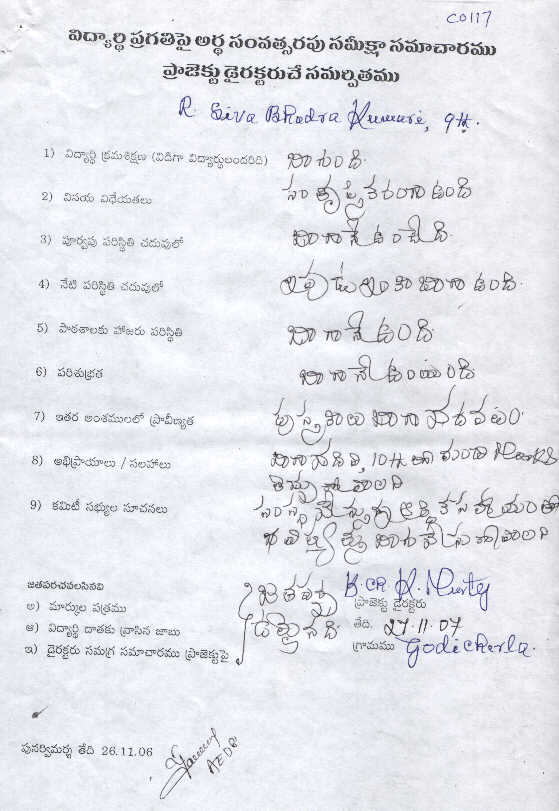 C0117
విద్యార్థి ప్రగతిపై అర్థ సంవత్సరపు సమీక్షా సమాచారము
ప్రాజెక్టు డైరక్టరుచే సమర్పితము
R. Siva Bhadra Kumari, 9th.
1) విద్యార్థి క్రమశిక్షణ (విడిగా విద్యార్థులందరిది) బాగుంది.
2) వినయ విధేయతలు సంతృప్తికరంగా ఉంది
3) పూర్వపు పరిస్థితి చదువులో బాగానే ఉంచేది.
4) నేటి పరిస్థితి చదువులో ఇపుడు ఇంకా బాగా ఉంది.
5) పాఠశాలకు హాజరు పరిస్థితి బాగానే ఉంది.
6) పరిశుభ్రత బాగానే ఉంటుంది.
7) ఇతర అంశములలో ప్రావీణ్యత పుస్తకాలు బాగా చదవటం.
8) అభిప్రాయాలు / సలహాలు బాగా చదివి, 10th లో మంచి Marks
తెచ్చుకోవాలి
9) కమిటీ సభ్యుల సూచనలు సంస్థ చేస్తున్న ఆర్థిక సహాయంతో
భవిష్యత్తు బాగు చేసుకోవాలి
జతపరచవలసినవి
అ) మార్కుల పత్రము
ఆ) విద్యార్థి దాతకు వ్రాసిన జాబు
ఇ) డైరక్టరు సమగ్ర సమాచారము ప్రాజెక్టుపై
జతపర్చ
డమైనది
B.Ch. K. Murty
ప్రాజెక్టు డైరక్టరు
తేది. 27.11.07
గ్రామము Godicherla.
పునర్విమర్శ తేది 26.11.06